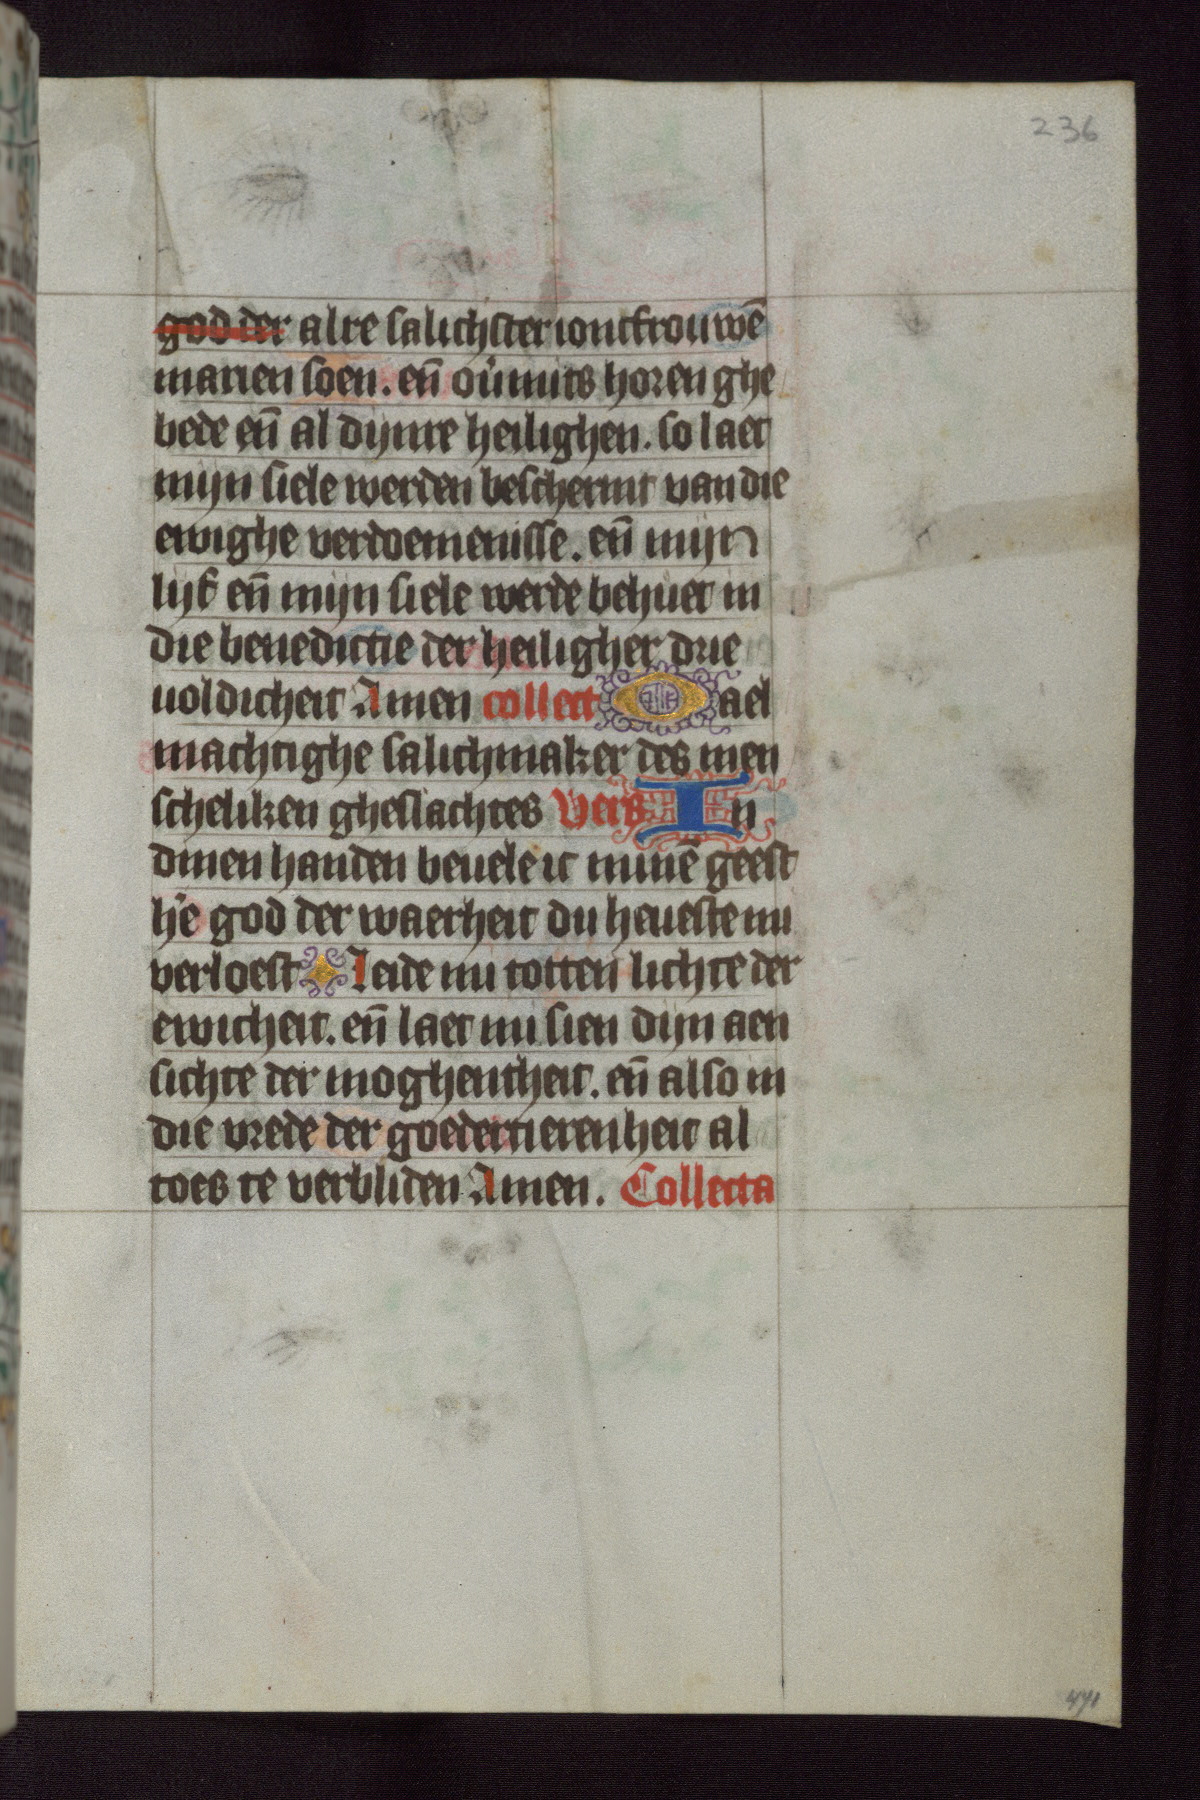 236
god der alre salichster ioncfrouwē
marien soen. eñ oūmits horen ghe
bede eñ al dijnre heilighen. so laet
mijn siele werden beschermt van die
ewighe verdoemenisse. eñ mijn
lijf eñ mijn siele werde behuet in
die benedictie der heiligher drie
uoldicheit Amen collect Oael
machtighe salichmaker des men
scheliken gheslachtes Vers In
dinen handen beuele ic minē geest
h'e god der waerheit du heueste mi
verloest Leide mi totten lichte der
ewicheit. eñ laet mi sien dijn aen
sichte der moghentheit. eñ also in
die vrede der goedertierenheit al
toes te verbliden Amen. Collecta
471